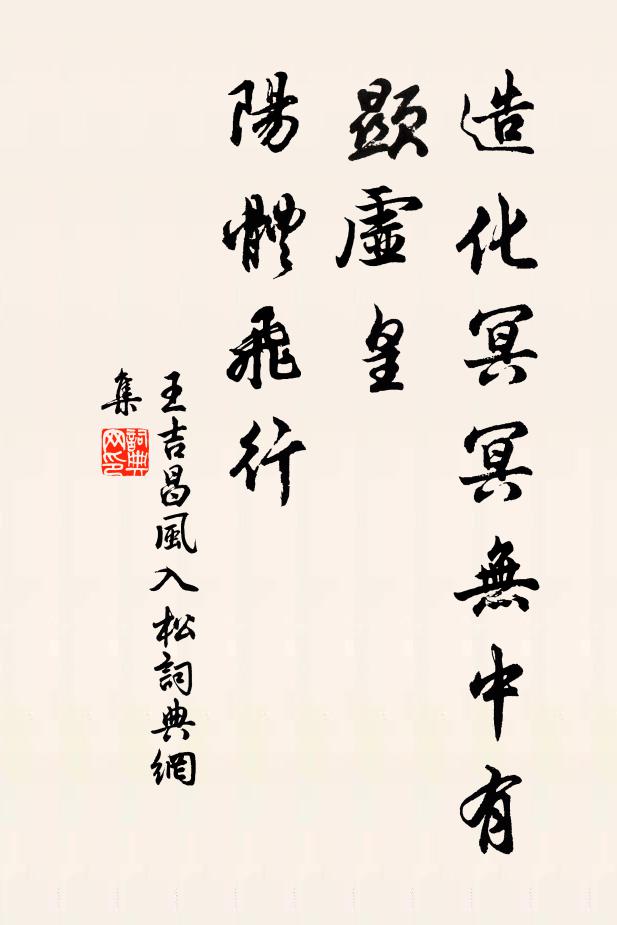 造化冥冥無中有
顯虛皇
陽體飛行
王吉昌風入松詞典網
集
詞典
网印